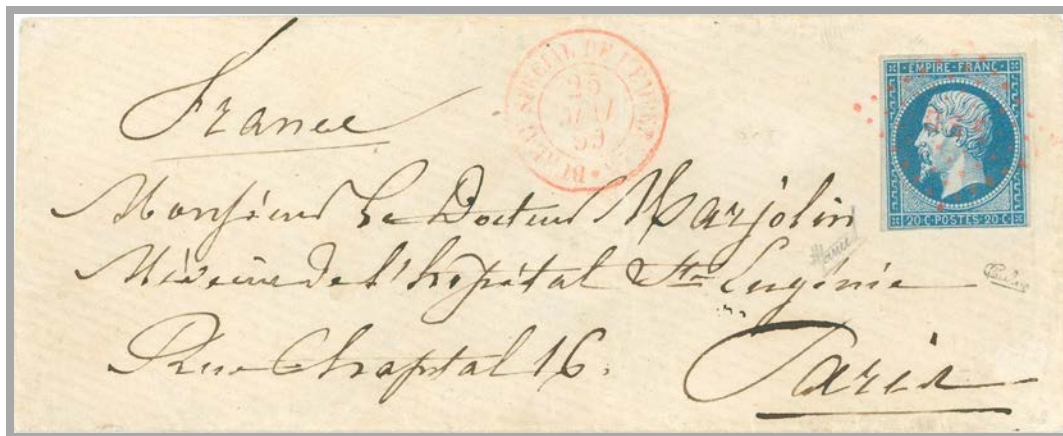 France
BUREAU SPECIAL DE L'EMPEREUR
25
59
EMPIRE FRANC
20 C POSTES 20 C
Monsieur Le Docteur Marjolin
Médecin de l'hopital Ste Eugénie
Rue Chaptal 16.
Paris